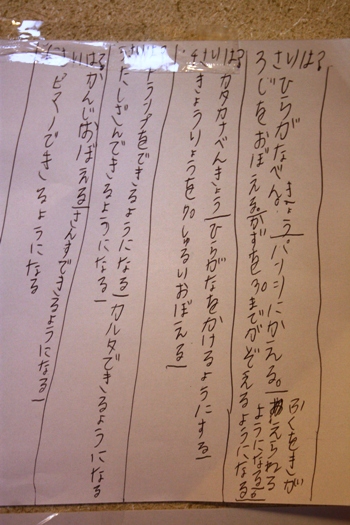 さいは?
ひらがなべんきょう パンツにかえる。
ふくをきが
えられる
ようになる。
ろじをおぼえる。かずを30までかぞえるようになる
さいは?
カタカナべんきょう ひらがなをかけるようにする
きょうりょうを70しゅるいおぼえる
さいは?
トランプをできるようになる カルタできるようになる
たしざんできるようになる
さいは?
かんじおぼえる さんすできるようになる
ピアノできるようになる